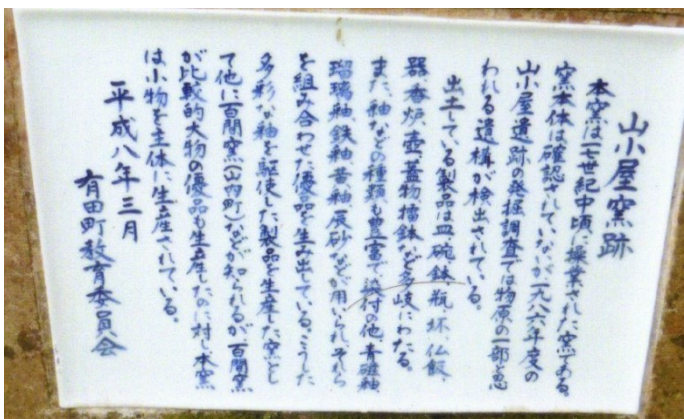 山小屋窯跡
本窯は一七世紀中頃に操業された窯である。
窯本体は確認されていないが一九八六年度の
山小屋遺跡の発掘調査では物原の一部と思
われる遺構が検出されている。
出土している製品は皿、碗、鉢、瓶、坏、仏飯
器、香炉、壺、蓋物、擂鉢など多岐にわたる。
また、釉などの種類も豊富で、染付の他、青磁釉、
瑠璃釉、鉄釉、黄釉、辰砂などが用いられ、それら
を組み合わせた優品を生み出している。こうした
多彩な釉を駆使した製品を生産した窯とし
て他に百間窯(山内町)などが知られるが、百間窯
が比較的大物の優品も生産したのに対し、本窯
は小物を主体に生産されている。
平成八年三月
有田町教育委員会